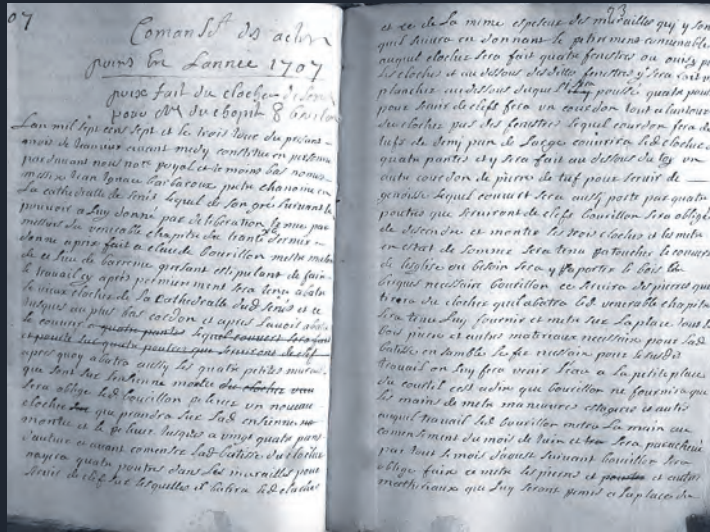 07
Comanst des actes
puins En Lannee 1707
prix fait du clocher de Senes
pour du chapit
Lan mil sept cens sept et le trois Jour du present
mois de Janvier avant medy constitue en personne
par devant nous note royal et temoins bas nomes
messire Jean Ignace barbaroux pretre chanoine en
La cathedralle de Senes lequel de son gre suivant le
pouvoir a Luy donne par deliberation tenue par
messieurs du venerable chapitre du trante dernier
donne a prix fait a claude bourillon mette masson
de ce lieu de barreme presant et stipulant de faire
le travail cy apres permierement sera tenu abatre
le vieux clocher de la Cathedralle dud Senes et ce
Jusques au plus bas cordon et apres Lavoir abatu
le couvrir a quatre pantes lequel couvert sera fait
et pousse sur quatre poutres que serviront de clef
apres quoy abatra aussy les quatre petites murailles
que sont sur Lancienne montee du clocher
sera oblige led bourillon elever un nouveau
clocher que prandra sur Lad ensienne
montee et le eslever Jusques a vingt quatre pans
d'auteur et avant comencer Lad batisse du clocher
quatre poutres dans Les murailles pour
servir de clef sur lesquelles il batira led clocher
93
et ce de La mime espeseur des murailles qui y sont
quil suivra en donnant le convenable
auquel clocher sera fait quatre fenestres ou
les cloches et au dessous des dittes fenestres y sera fait un
plancher au dessous duquel pousse quatre poutres
pour servir de clef fera un cordon tout a lantour
du clocher pres des fenestres lequel cordon sera de
tufs de demy pan de Large couvrira led clocher a
quatre pantes et y sera fait au dessous du un
autre cordon de pierre de tuf pour servir de
genoise lequel couvert sera aussy porte par quatre
poutres que serviront de clefs bourillon sera oblige
de descendre et monter les trois cloches et les metre
en estat de sonner sera tenu Retoucher le couvert
de leglise ou besoin sera y aporter le bois les
briques necessaire bourillon se servira des pierres que
tirera du clocher quil abatra led venerable chapitre
sera tenu Luy fournir et metre sur La place tout le
bois pierre et autres materiaux necessaire pour Lad
batisse ensembles le fer necessaire pour le susdit
travail on Luy fera venir Leau a la petite place
du courtil cest adire que bourillon ne fournira que
les mains de metre manuvres estageres et autres
auquel travail led bourillon metra La main au
comensement du mois de Juin et sera parachevé
par tout le mois daoust suivant bourillon sera
oblige faire et metre les pierres et poutres et autres
matheriaux que Luy seront remis a la place du